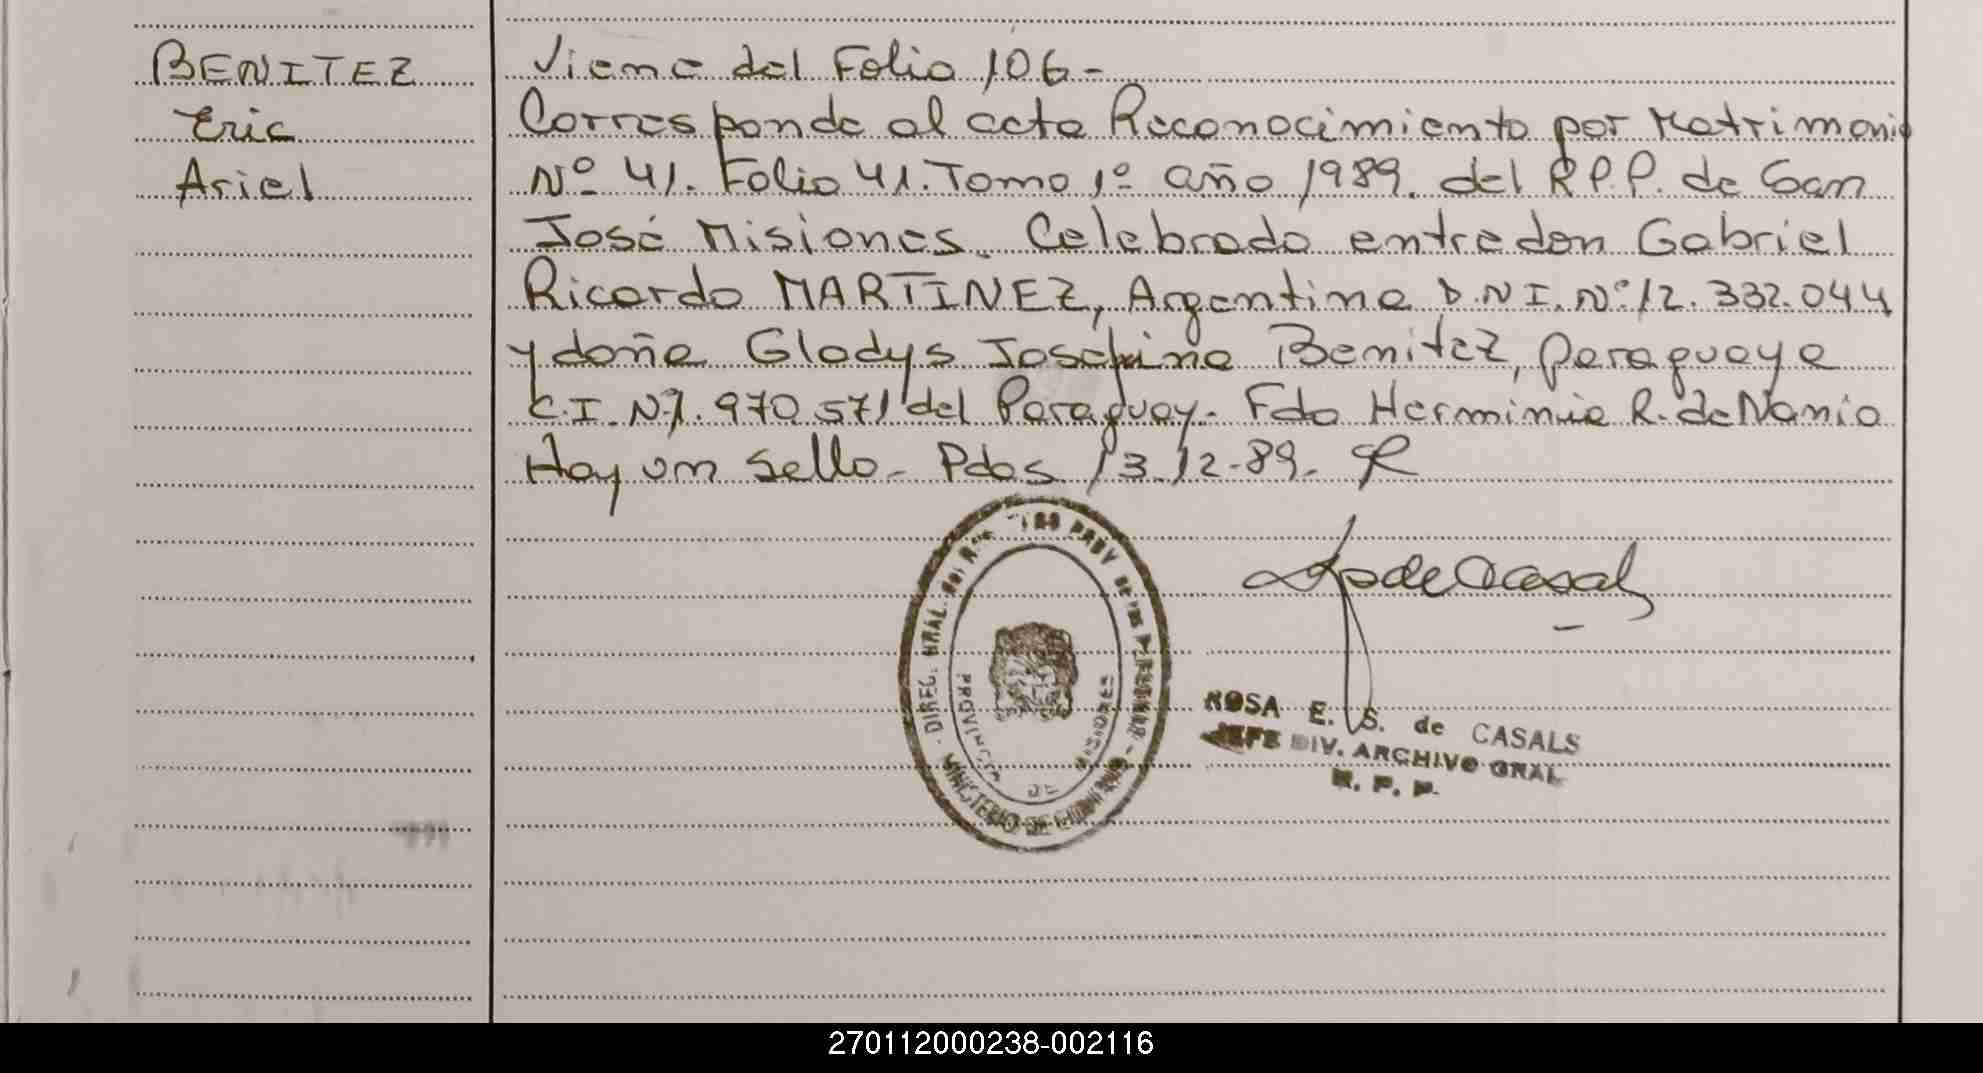 BENITEZ
Eric
Ariel
Viene del Folio 106-
Corresponde al acta Reconocimiento por Matrimonio
Nº 41. Folio 41. Tomo 1º año 1989. del R.P.P. de San
José Misiones. Celebrado entre don Gabriel
Ricardo MARTINEZ, Argentino D.N.I. Nº 12.332.044
y doña Gladys Josefina Benitez, paraguaya
C.I. Nº 1.970.571 del Paraguay.- Fdo Herminia R. de Nanio
Hay un sello.- Pdas 13.12-89.
DIREC. GRAL. DEL PROV. DE LAS PERSONAS
MINISTERIO DE GOBIERNO
PROVINCIA DE MISIONES
ROSA E. S. de CASALS
JEFE DIV. ARCHIVO GRAL
R. P. P.
270112000238-002116